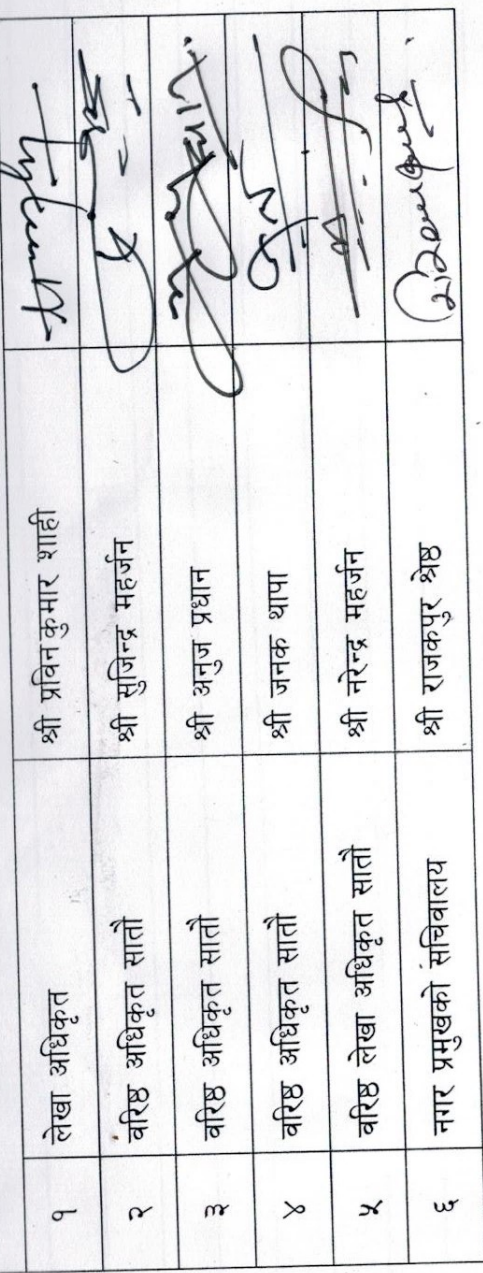 १ लेखा अधिकृत श्री प्रविन कुमार शाही
२ वरिष्ठ अधिकृत सातौ श्री सुजिन्द्र महर्जन
३ वरिष्ठ अधिकृत सातौ श्री अनुज प्रधान
४ वरिष्ठ अधिकृत सातौ श्री जनक थापा
५ वरिष्ठ लेखा अधिकृत सातौ श्री नरेन्द्र महर्जन
६ नगर प्रमुखको सचिवालय श्री राजकपुर श्रेष्ठ